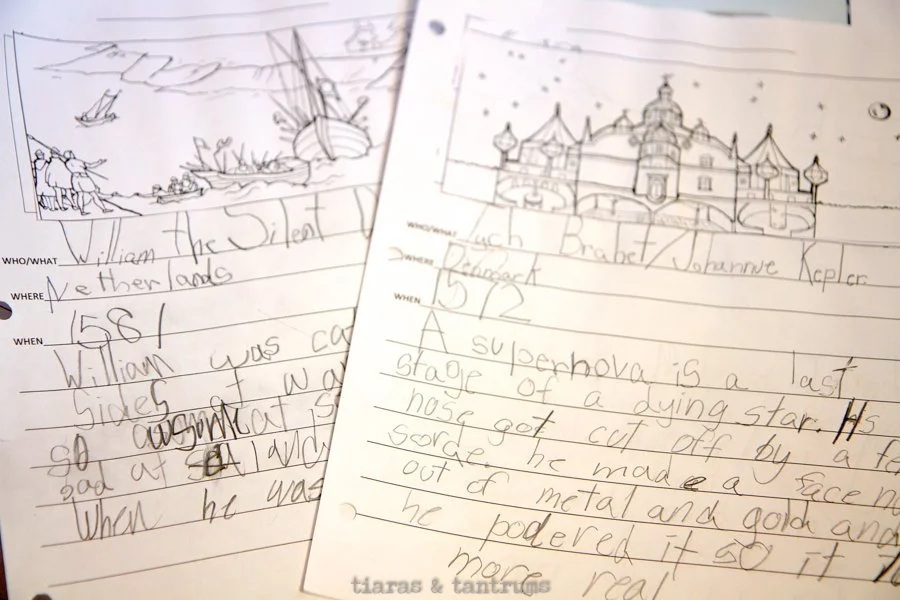 WHO/WHAT William the Silent
WHERE Netherlands
WHEN 1581
William was
sides at
so at
bad at
When he was
WHO/WHAT Brahet/Johannue Kepler
WHERE
WHEN 1572
A superhova is a last
stage of a dying star. His
nose got cut off by a
scorde. he made a face
out of metal and gold and
he podered it so it
more real
tiaras & tantrums